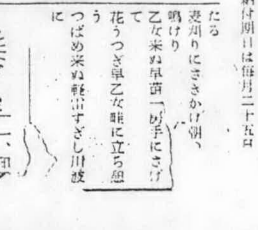 給付期日は毎月二十五日
たる
麦刈りにさきかけ朝い
鳴けり
乙女来ぬ早苗一房手にさげ
て
花うつぎ早乙女畦に立ち憩
う
つばめ来ぬ軽出すぎし川波
に